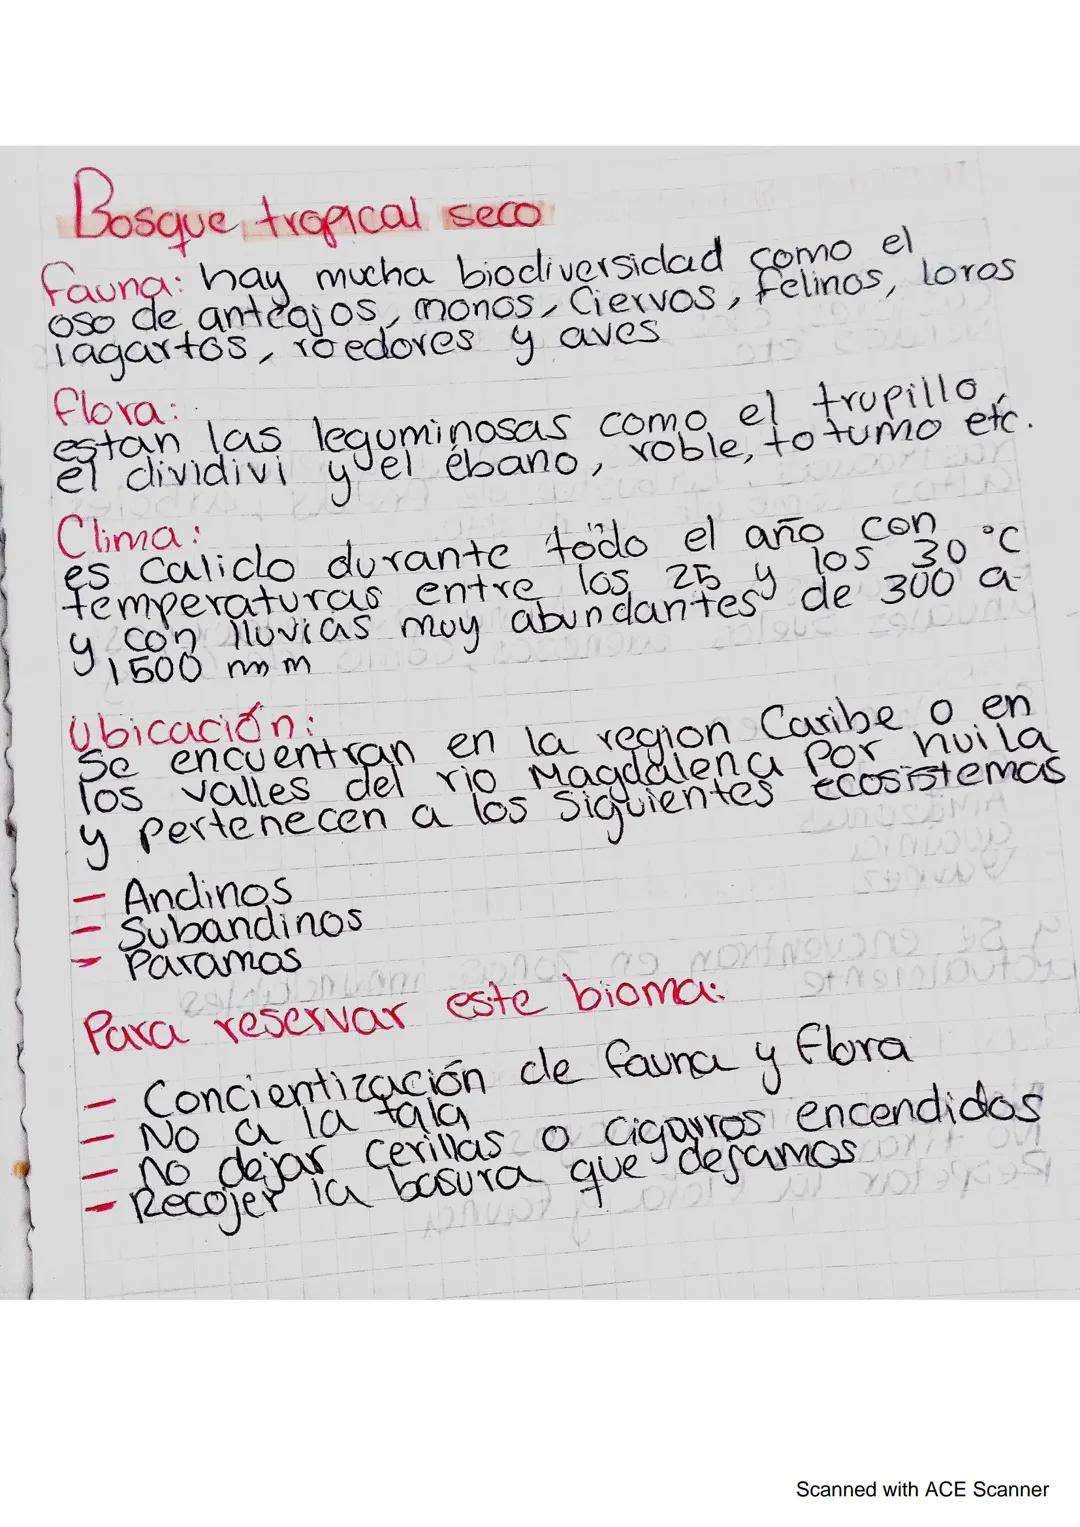 Bosque tropical seco
fauna: hay mucha biodiversidad como el
oso de anteojos, monos, Ciervos, felinos, loros
lagartos, roedores y aves
flora:
estan las leguminosas como el trupillo,
el dividivi y el ébano, roble, totumo etc.
Clima:
es calido durante todo el año con
temperaturas entre los 25 y los 30 °C
y con lluvias muy abundantes de 300 a
1500 mm
Ubicación:
Se encuentran en la region Caribe o en
los valles del rio Magdalena Por huila
y pertenecen a los siguientes ecosistemas
- Andinos
- Subandinos
- Paramos
Para reservar este bioma:
- Concientización de fauna y flora
- No a la tala
- no dejar cerillas o cigarros encendidos
- Recojer la basura que dejamos
Scanned with ACE Scanner